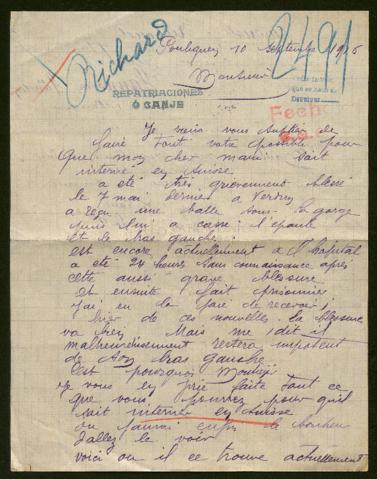 Richard
2491
Pouliguen 10 Septembre 1916
Monsieur
REPATRIACIONES
Ó CANJE
Fech
Je viens vous suplier de
faire tout votre possible pour
que mon cher mari soit
interné en Suisse
a été très grièvement blessé
le 7 mai dernier a Verdun
a reçu une balle sous la gorge
qui lui a cassé l'épaule
et le bras gauche
est encore actuellement a l'hopital
a été 24 heures sans connaissance après
cette aussi grave blessure
et ensuite fait prisonnier
J'ai eu la joie de recevoir
hier de ces nouvelles la blessure
va bien Mais me dit il
malheureusement restera impotent
de son bras gauche
c'est pourquoi Monsieur
je vous en prie faite tout ce
que vous pourrez pour qu'il
soit interné en Suisse
ou j'aurai enfin le bonheur
d'allez le voir
voici ou il ce trouve actuellement